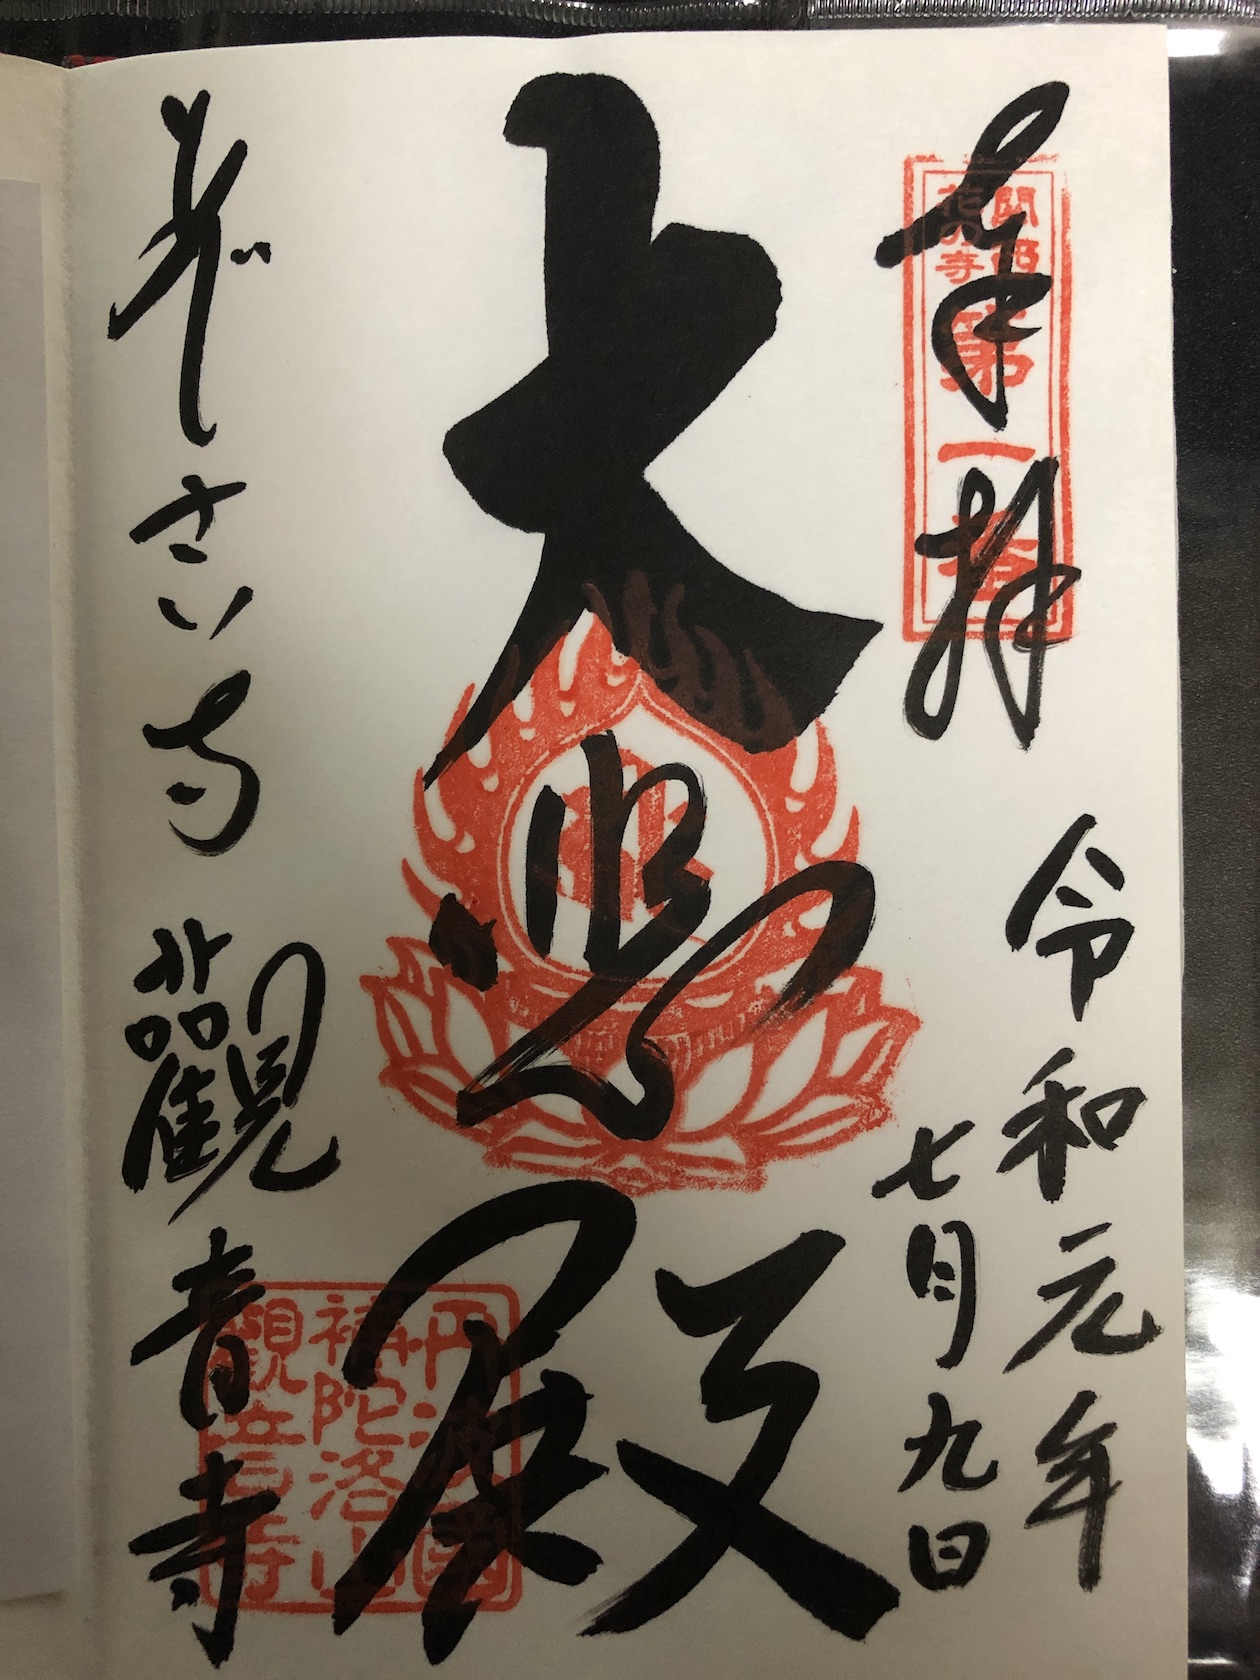 奉拝
関西
花の寺
第一番
令和元年
七月九日
大悲殿
あじさい寺 觀音寺
丹波國
補陀洛山
觀音寺